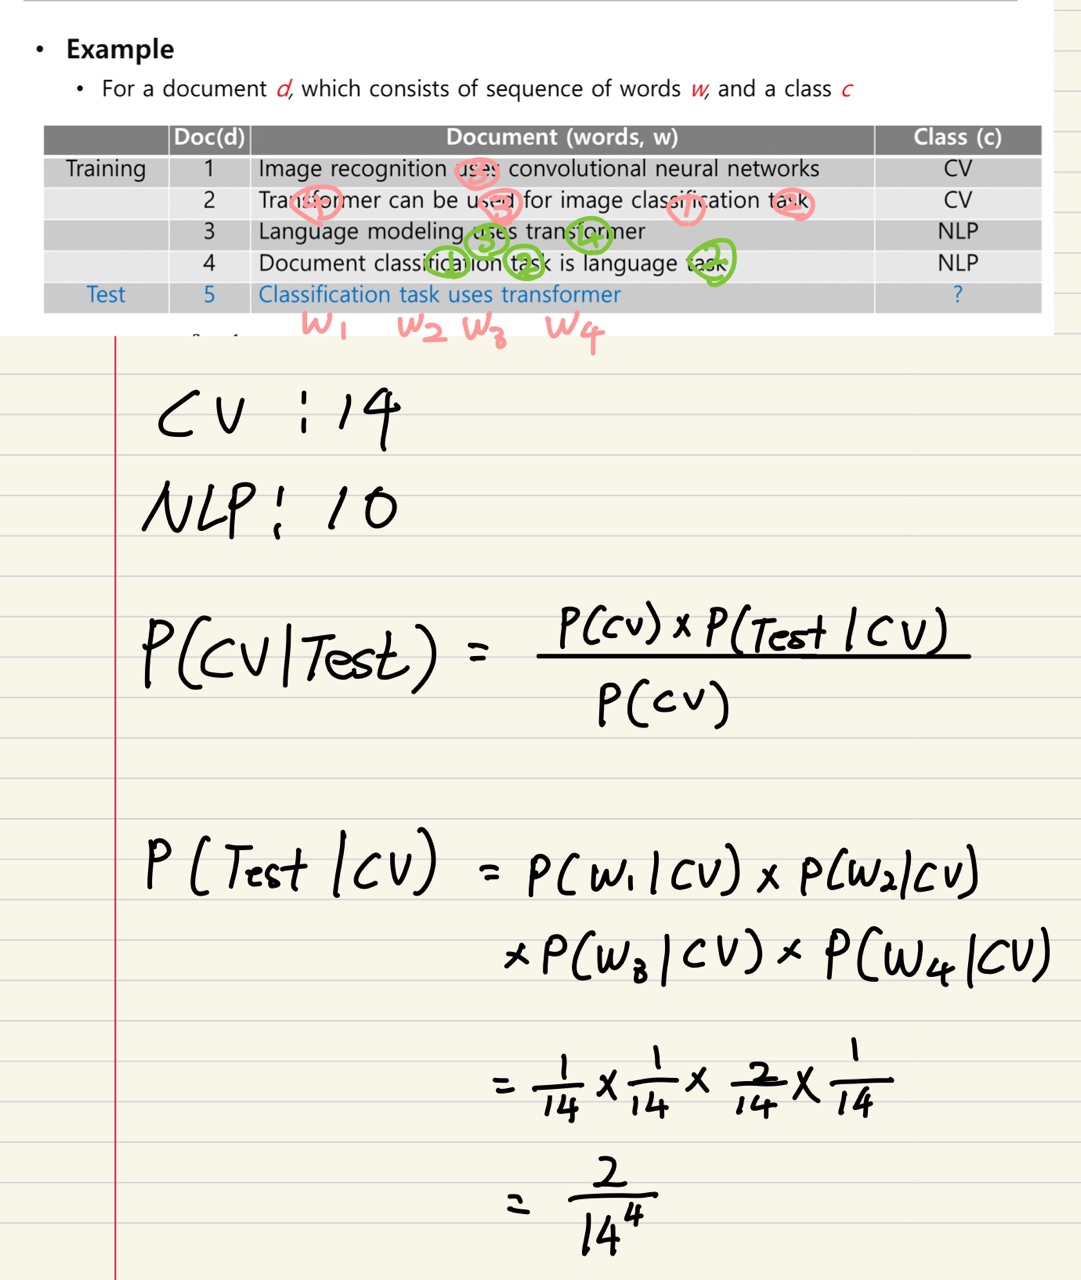 • Example
• For a document d, which consists of sequence of words w, and a class c
Doc(d) Document (words, w) Class (c)
Training 1 Image recognition uses convolutional neural networks CV
③
2 Transformer can be used for image classification task CV
④ ③ ① ②
3 Language modeling uses transformer NLP
③ ④
4 Document classification task is language task NLP
① ② ②
Test 5 Classification task uses transformer ?
W1 W2 W3 W4
CV : 14
NLP : 10
P(CV|Test) = P(CV) × P(Test|CV)
P(CV)
P(Test|CV) = P(W1|CV) × P(W2|CV)
× P(W3|CV) × P(W4|CV)
= 1/14 × 1/14 × 2/14 × 1/14
= 2/14⁴